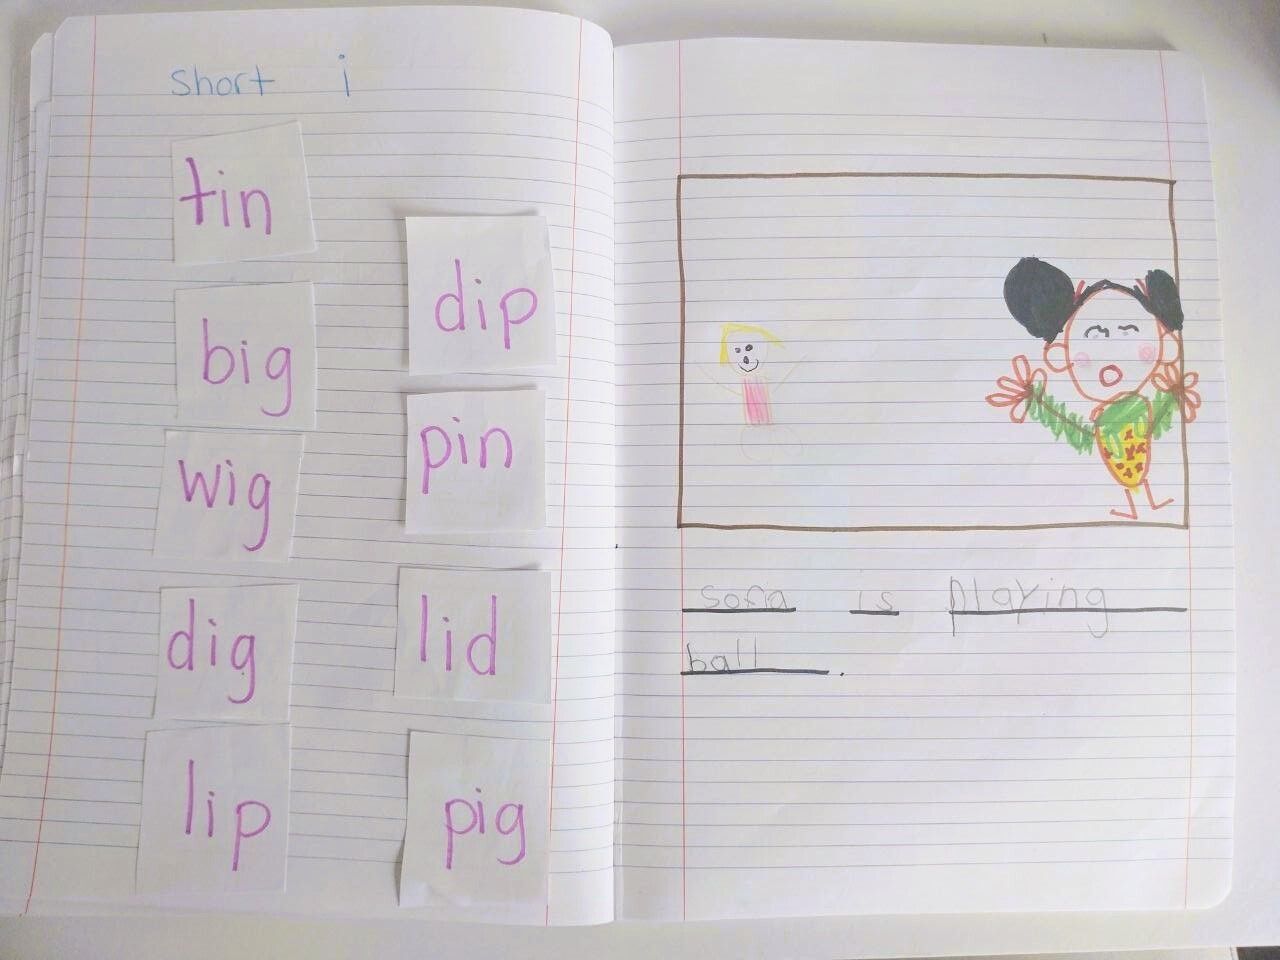 short i
tin
big
wig
dig
lip
dip
pin
lid
pig
sofa is playing
ball.